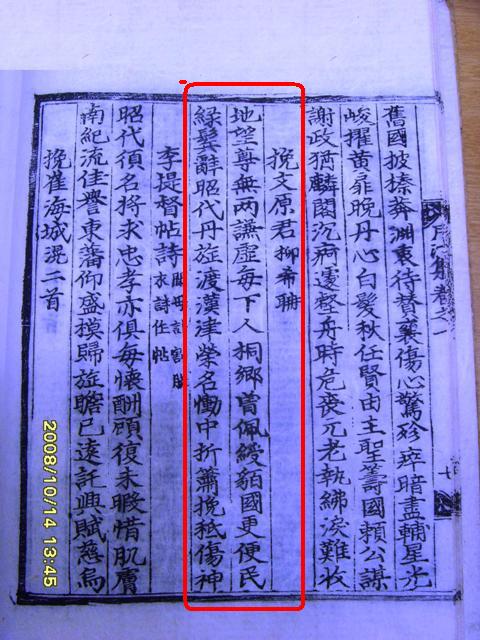 卷之一
舊國披榛莽淵衷待贊襄傷心驚殄瘁暗盡輔星光
峻擢黃扉晚丹心白髮秋任賢由主聖籌國賴公謀
謝政猶麟閣沉痾遽壑舟時危喪元老執紼淚難收
挽文原君柳希聃
地望尊無兩謙虛每下人桐鄉曾佩綬貊國更便民
綠鬓辭昭代丹旌渡漢津榮名慟中折簫挽秪傷神
李提督帖詩
昭代須名將求忠孝亦俱每懷酬顧復未暇惜肌膚
南紀流佳譽東藩仰盛模歸旌瞻已遠託興賦慈烏
挽崔海城滉二首
2008/10/14 13:45